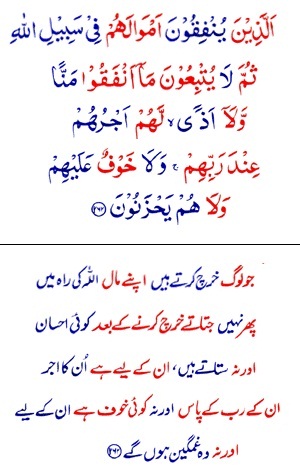 اَلَّذِيْنَ يُنْفِقُوْنَ اَمْوَالَهُمْ فِيْ سَبِيْلِ اللّٰهِ
ثُمَّ لَا يُتْبِعُوْنَ مَاۤ اَنْفَقُوْا مَنًّا
وَّلَاۤ اَذًى ۙ لَّهُمْ اَجْرُهُمْ
عِنْدَ رَبِّهِمْ ۚ وَلَا خَوْفٌ عَلَيْهِمْ
وَلَا هُمْ يَحْزَنُوْنَ ﴿۲۶۲﴾
جو لوگ خرچ کرتے ہیں اپنے مال اللہ کی راہ میں
پھر نہیں جتاتے خرچ کرنے کے بعد کوئی احسان
اور نہ ستاتے ہیں، ان کے لیے ہے اُن کا اجر
ان کے رب کے پاس اور نہ کوئی خوف ہے ان کے لیے
اور نہ وہ غمگین ہوں گے ﴿۲۶۲﴾